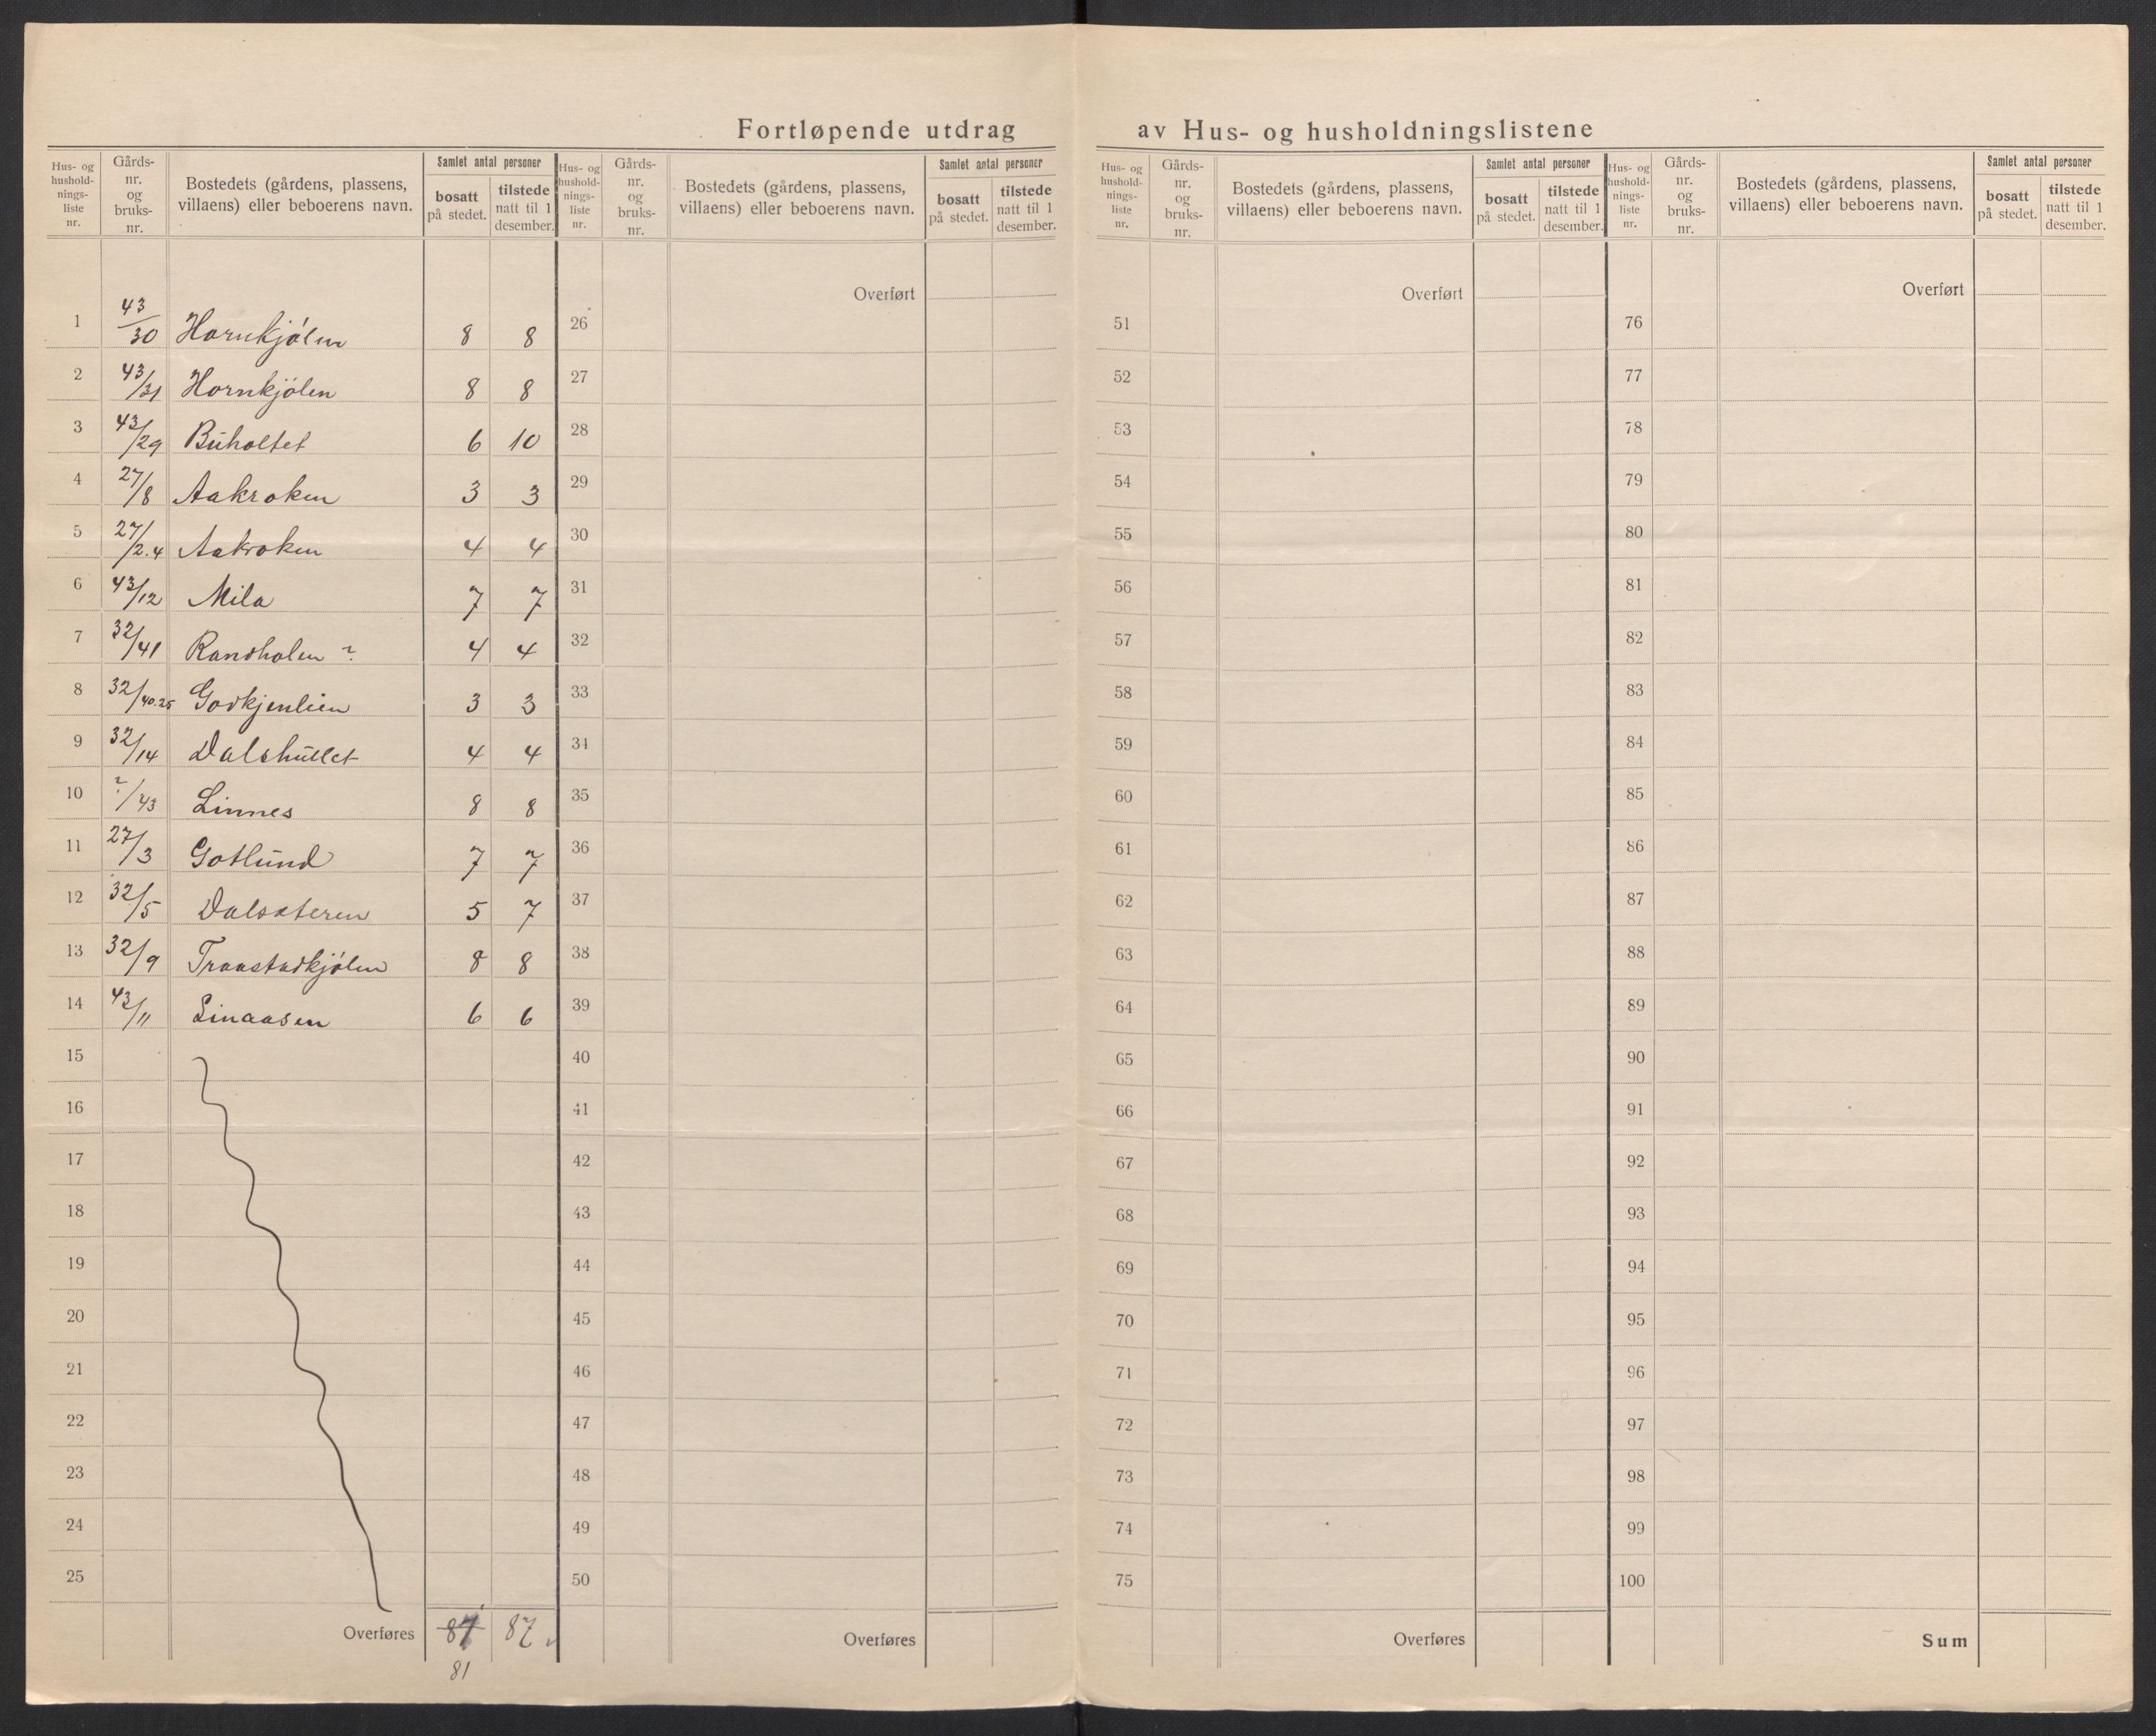 Fortløpende utdrag av Hus- og husholdningslistene
Hus- og hushold- nings- liste nr. Gårds- nr. og bruks- nr. Bostedets (gårdens, plassens, villaens) eller beboerens navn. Samlet antal personer bosatt på stedet. tilstede natt til 1 desember.
Hus- og hushold- nings- liste nr. Gårds- nr. og bruks- nr. Bostedets (gårdens, plassens, villaens) eller beboerens navn. Samlet antal personer bosatt på stedet. tilstede natt til 1 desember.
Hus- og hushold- nings- liste nr. Gårds- nr. og bruks- nr. Bostedets (gårdens, plassens, villaens) eller beboerens navn. Samlet antal personer bosatt på stedet. tilstede natt til 1 desember.
Hus- og hushold- nings- liste nr. Gårds- nr. og bruks- nr. Bostedets (gårdens, plassens, villaens) eller beboerens navn. Samlet antal personer bosatt på stedet. tilstede natt til 1 desember.
Overført Overført Overført
1 43/30 Hornkjølen 8 8 26 51 76
2 43/31 Hornkjølen 8 8 27 52 77
3 43/29 Buholtet 6 10 28 53 78
4 27/8 Aakroken 3 3 29 54 79
5 27/2.4 Aakroken 4 4 30 55 80
6 43/12 Mila 7 7 31 56 81
7 32/41 Randholen ? 4 4 32 57 82
8 32/40.25 Godkjenlien 3 3 33 58 83
9 32/14 Dalshullet 4 4 34 59 84
10 ?/43 Linnes 8 8 35 60 85
11 27/3 Gotlund 7 7 36 61 86
12 32/5 Dalsæteren 5 7 37 62 87
13 32/9 Traastadkjølen 8 8 38 63 88
14 43/11 Linaasen 6 6 39 64 89
15 40 65 90
16 41 66 91
17 42 67 92
18 43 68 93
19 44 69 94
20 45 70 95
21 46 71 96
22 47 72 97
23 48 73 98
24 49 74 99
25 50 75 100
Overføres 87 87 Overføres Overføres Sum
81